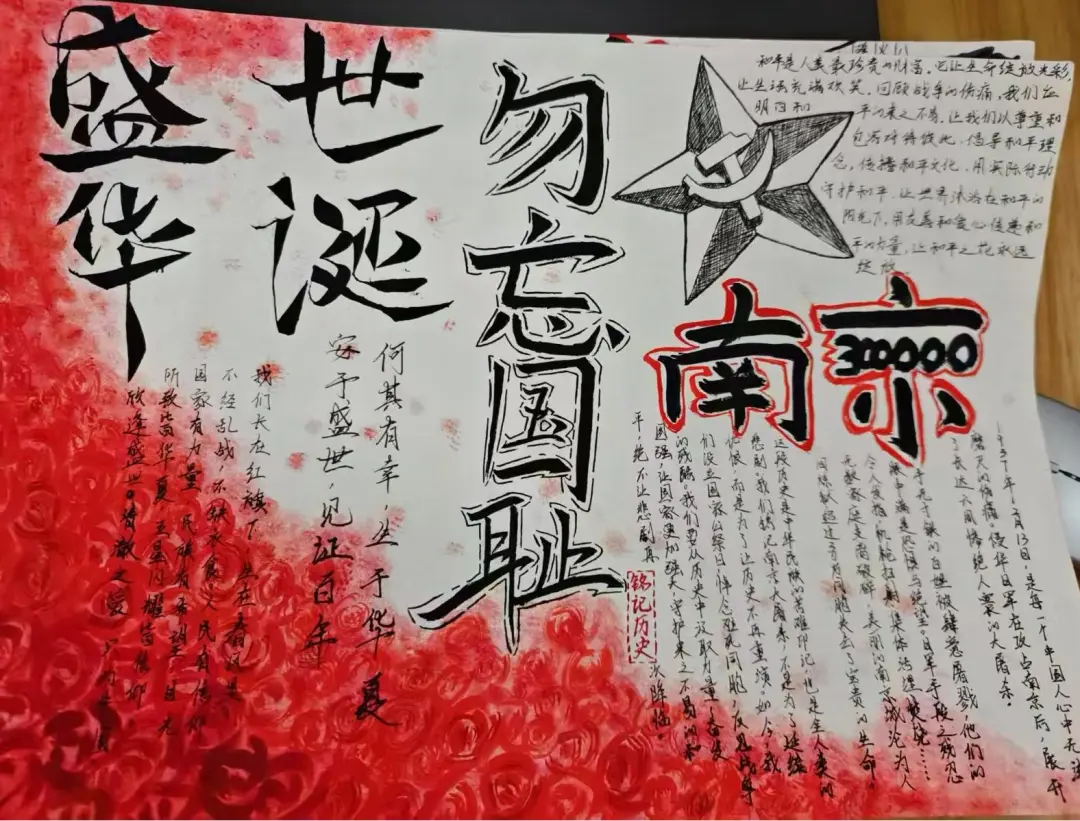 盛世诞
华
勿忘国耻
南京
300000
倡议书
和平是人类最珍贵的财富。它让生命绽放光彩，
让生活充满欢笑。回顾战争的伤痛，我们应
明白和
平的来之不易。让我们以尊重和
包容对待彼此，倡导和平理
念，传播和平文化，用实际行动
守护和平，让世界沐浴在和平的
阳光下，用友善和爱心传递和
平的力量，让和平之花永远
绽放
何其有幸，生于华夏
安于盛世，见证百年
我们长在红旗下，生在春风里
不经乱战，不缺衣食，人民有信仰
国家有力量，民族有希望，目光
所致皆华夏，五星闪耀皆信仰，
欣逢盛世。
1937年12月13日，是每一个中国人心中无法
磨灭的伤痛。侵华日军在攻占南京后，展开
了长达六周惨绝人寰的大屠杀。
手无寸铁的百姓被肆意屠戮，他们的
眼中满是恐惧与绝望。日军手段之残忍
令人发指，机枪扫射、集体活埋、焚烧……
无数家庭支离破碎，美丽的南京城沦为人
同胞失去了宝贵的生命。
这段历史是中华民族的苦难印记，也是全人类的
悲剧。我们铭记南京大屠杀，不是为了延续
仇恨，而是为了让历史不再重演。如今，我
们设立国家公祭日，悼念死难同胞，反思战争
的残酷。我们要从历史中汲取力量，奋发
图强，让国家更加强大，守护来之不易的和
平，绝不让悲剧再
次降临。
铭记历史